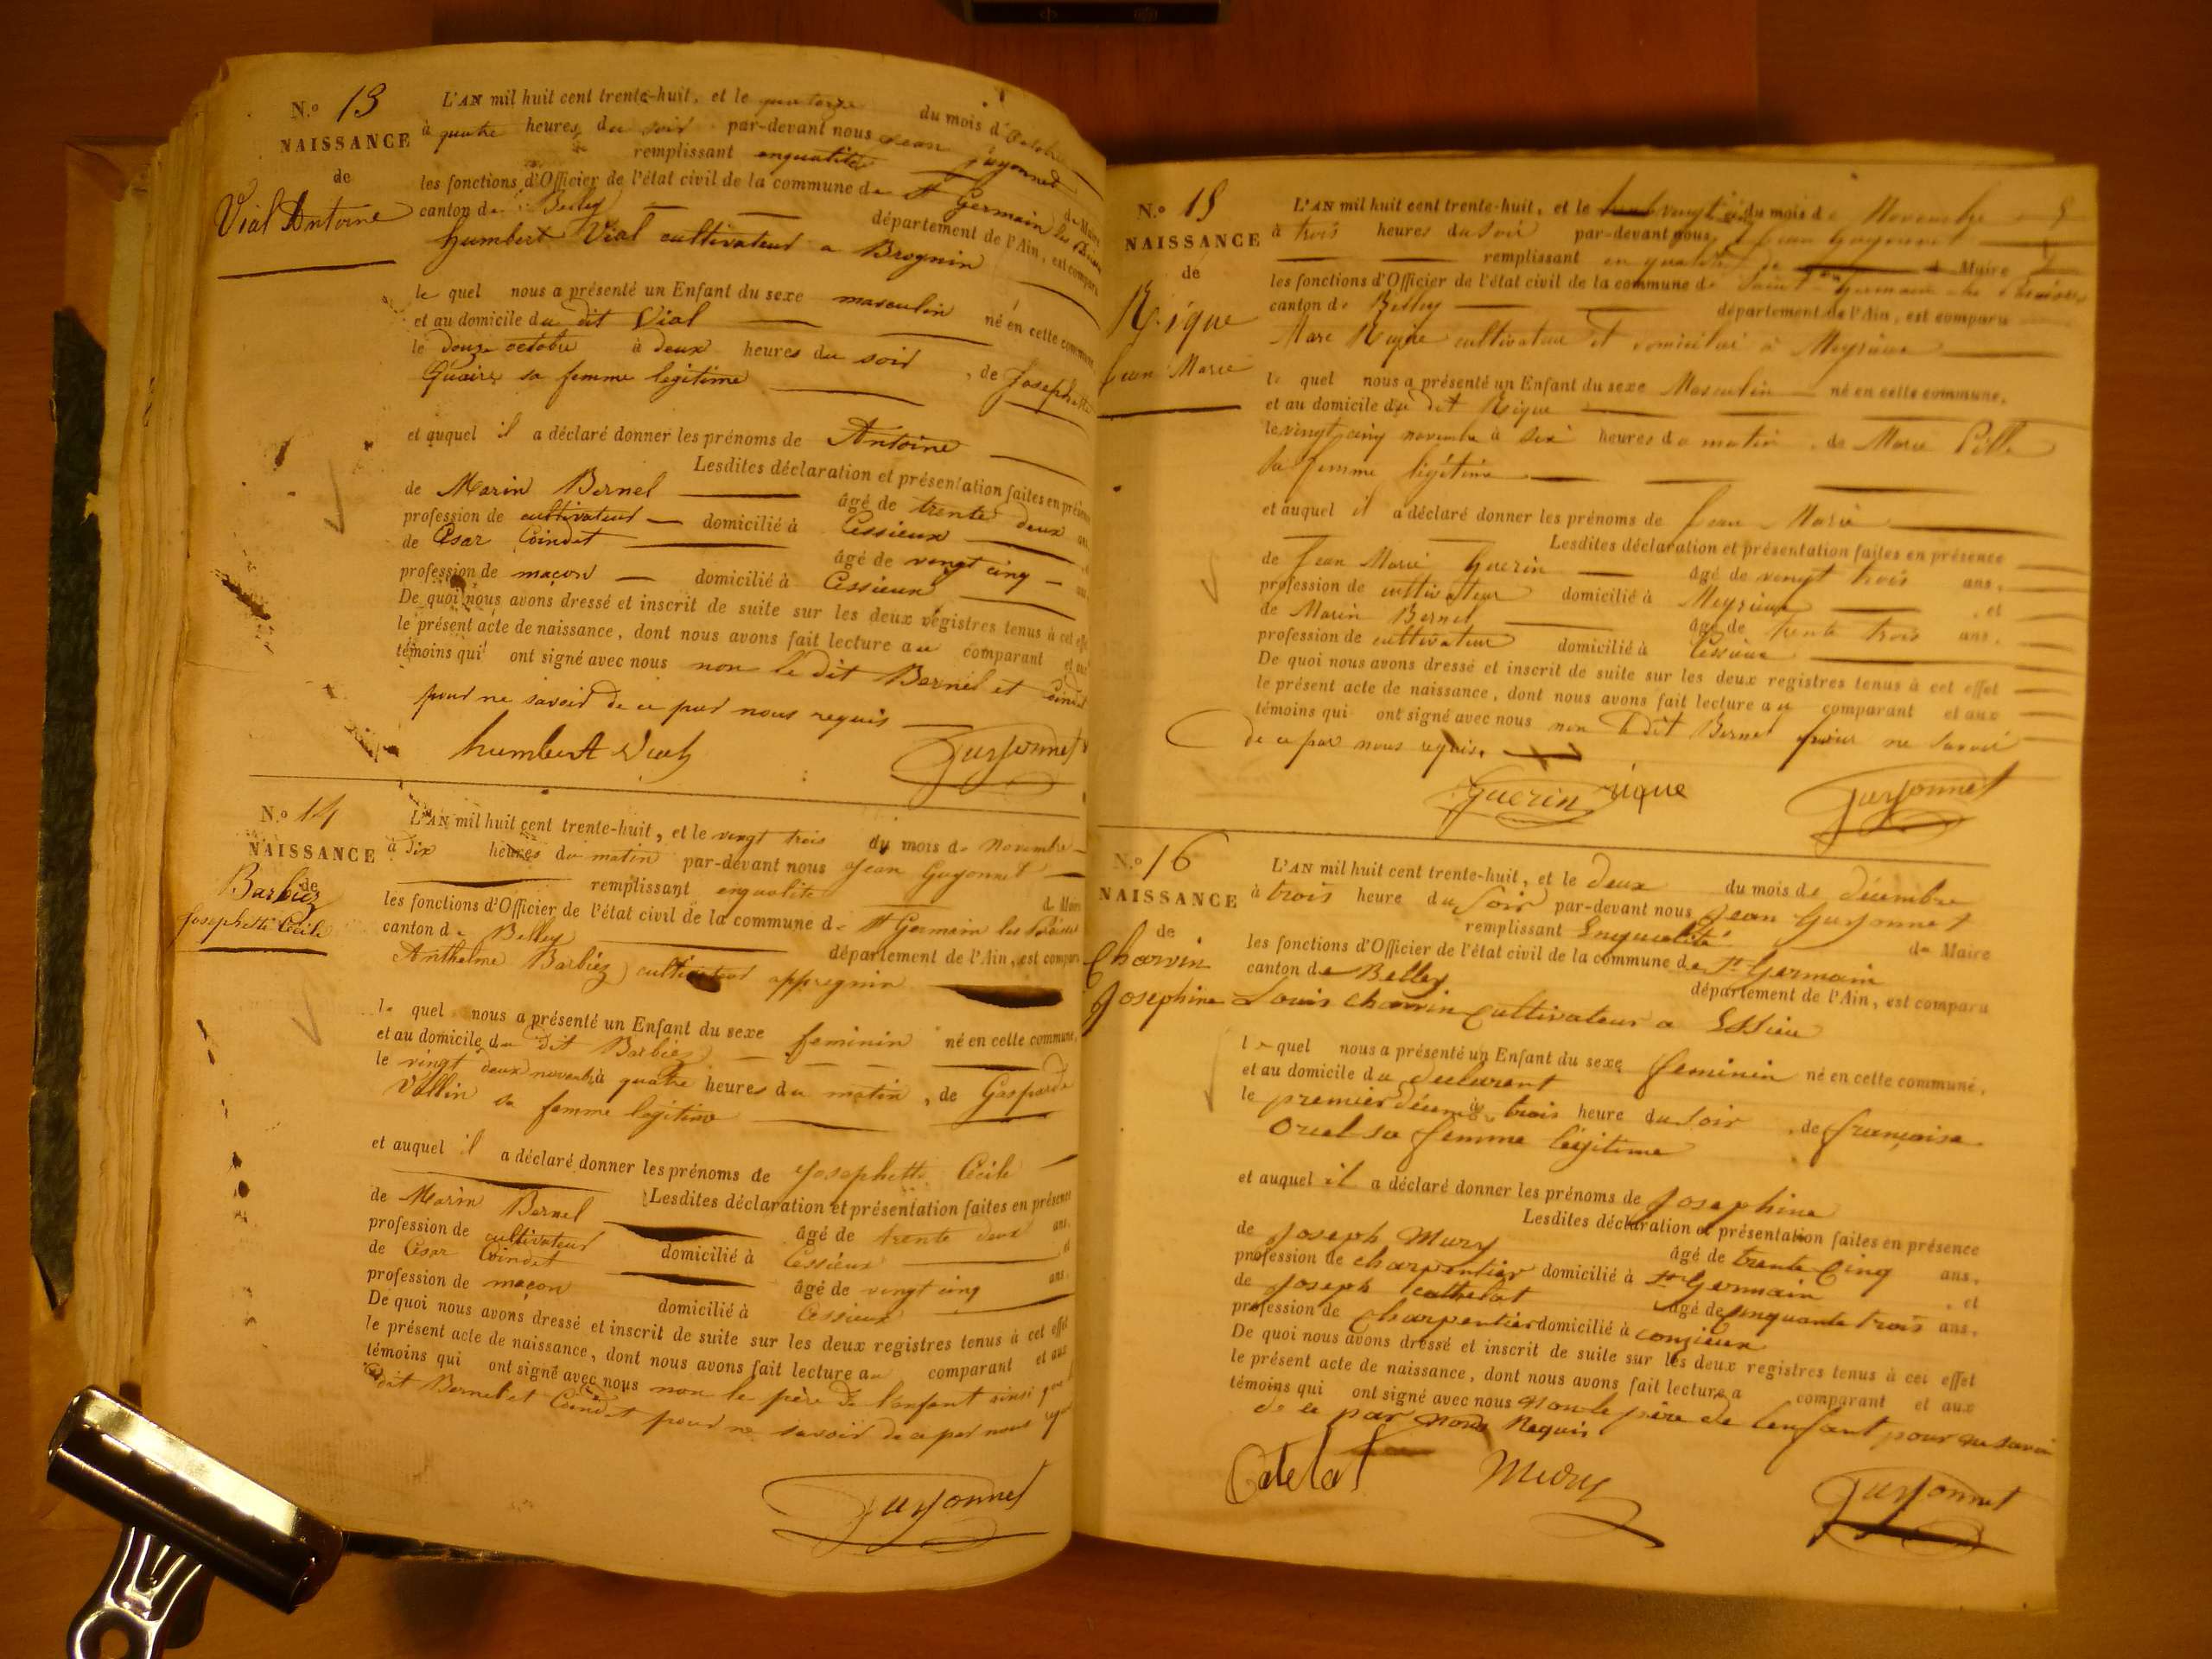 N.o 13
NAISSANCE
de
Vial Antoine
L'AN mil huit cent trente-huit, et le quatorze du mois d'Octobre
à quatre heures du soir par-devant nous Jean guyonnet
remplissant enqualité de Maire
les fonctions d'Officier de l'état civil de la commune de St Germain les
canton de Belley département de l'Ain, est comparu
humbert Vial cultivateur a Brognin
le quel nous a présenté un Enfant du sexe masculin né en cette commune,
et au domicile du dit Vial
le douze octobre à deux heures du soir, de Josephette
Guaires sa femme legitime
et auquel il a déclaré donner les prénoms de Antoine
Lesdites déclaration et présentation faites en présence
de Marin Bernel âgé de trente deux ans,
profession de cultivateur domicilié à Cessieux
de César Coindet âgé de vengt cinq
profession de maçon domicilié à Cessieux
De quoi nous avons dressé et inscrit de suite sur les deux régistres tenus à cet effet
le présent acte de naissance, dont nous avons fait lecture au comparant et aux
témoins qui ont signé avec nous non le dit Bernel et Coindet
pour ne savoir de ce par nous requis
humbert Vial Guyonnet
N.o 14
NAISSANCE
de
Barbiéz
Josephette Cécile
L'AN mil huit cent trente-huit, et le vingt trois du mois de Novembre
à dix heures du matin par-devant nous Jean Guyonnet
remplissant enqualité de Maire
les fonctions d'Officier de l'état civil de la commune de St Germain les Paroisses
canton de Belley département de l'Ain, est comparu
Anthelme Barbiéz cultivateur appregnin
le quel nous a présenté un Enfant du sexe feminin né en cette commune,
et au domicile du dit Barbiéz
le vingt deux novembre à quatre heures du matin, de Gasparde
Vallin sa femme legitime
et auquel il a déclaré donner les prénoms de Josephette Cécile
Lesdites déclaration et présentation faites en présence
de Marin Bernel âgé de trente deux ans,
profession de cultivateur domicilié à Cessieux et
de César Coindet âgé de vingt cinq ans,
profession de maçon domicilié à Cessieux
De quoi nous avons dressé et inscrit de suite sur les deux registres tenus à cet effet
le présent acte de naissance, dont nous avons fait lecture au comparant et aux
témoins qui ont signé avec nous non le père de l'enfant ainsi que le
dit Bernel et Coindet pour ne savoir de ce par nous requis
Guyonnet
N.o 15
NAISSANCE
de
Rique
Jean Marie
L'AN mil huit cent trente-huit, et le vingt du mois de Novembre
à trois heures du soir par-devant nous Jean Guyonnet
remplissant en qualité de de Maire
les fonctions d'Officier de l'état civil de la commune de Saint Germain les Paroisses
canton de Belley département de l'Ain, est comparu
Marc Rique cultivateur et domicilié à Meyrieux
le quel nous a présenté un Enfant du sexe Masculin né en cette commune,
et au domicile du dit Rique
le vingt cinq novembre à six heures du matin, de Marie Pille
sa femme légitime
et auquel il a déclaré donner les prénoms de Jean Marie
Lesdites déclaration et présentation faites en présence
de Jean Marie Guerin âgé de vingt trois ans,
profession de cultivateur domicilié à Meyrieux, et
de Marin Bernel âgé de trente trois ans,
profession de cultivateur domicilié à Cessieux
De quoi nous avons dressé et inscrit de suite sur les deux registres tenus à cet effet
le présent acte de naissance, dont nous avons fait lecture au comparant et aux
témoins qui ont signé avec nous non le dit Bernel pour ne savoir
de ce par nous requis.
Guerin rique Guyonnet
N.o 16
NAISSANCE
de
Charvin
Josephine
L'AN mil huit cent trente-huit, et le deux du mois de décembre
à trois heure du Soir par-devant nous Jean Guyonnet
remplissant Enqualité de Maire
les fonctions d'Officier de l'état civil de la commune de St Germain
canton de Belley département de l'Ain, est comparu
Louis charvin Cultivateur a Essieu
le quel nous a présenté un Enfant du sexe feminin né en cette commune,
et au domicile du déclarent
le premier décemb à trois heure du Soir, de françoise
Orcel sa femme légitime
et auquel il a déclaré donner les prénoms de Josephine
Lesdites déclaration et présentation faites en présence
de Joseph Mury âgé de trente Cinq ans,
profession de charpentier domicilié à St Germain, et
de Joseph Cathelat âgé de Cinquante trois ans,
profession de Charpentier domicilié à conzieux
De quoi nous avons dressé et inscrit de suite sur les deux registres tenus à cet effet
le présent acte de naissance, dont nous avons fait lecture a comparant et aux
témoins qui ont signé avec nous non le père de lenfant pour ne savoir
de ce par nous Requis
Catelat Mury Guyonnet